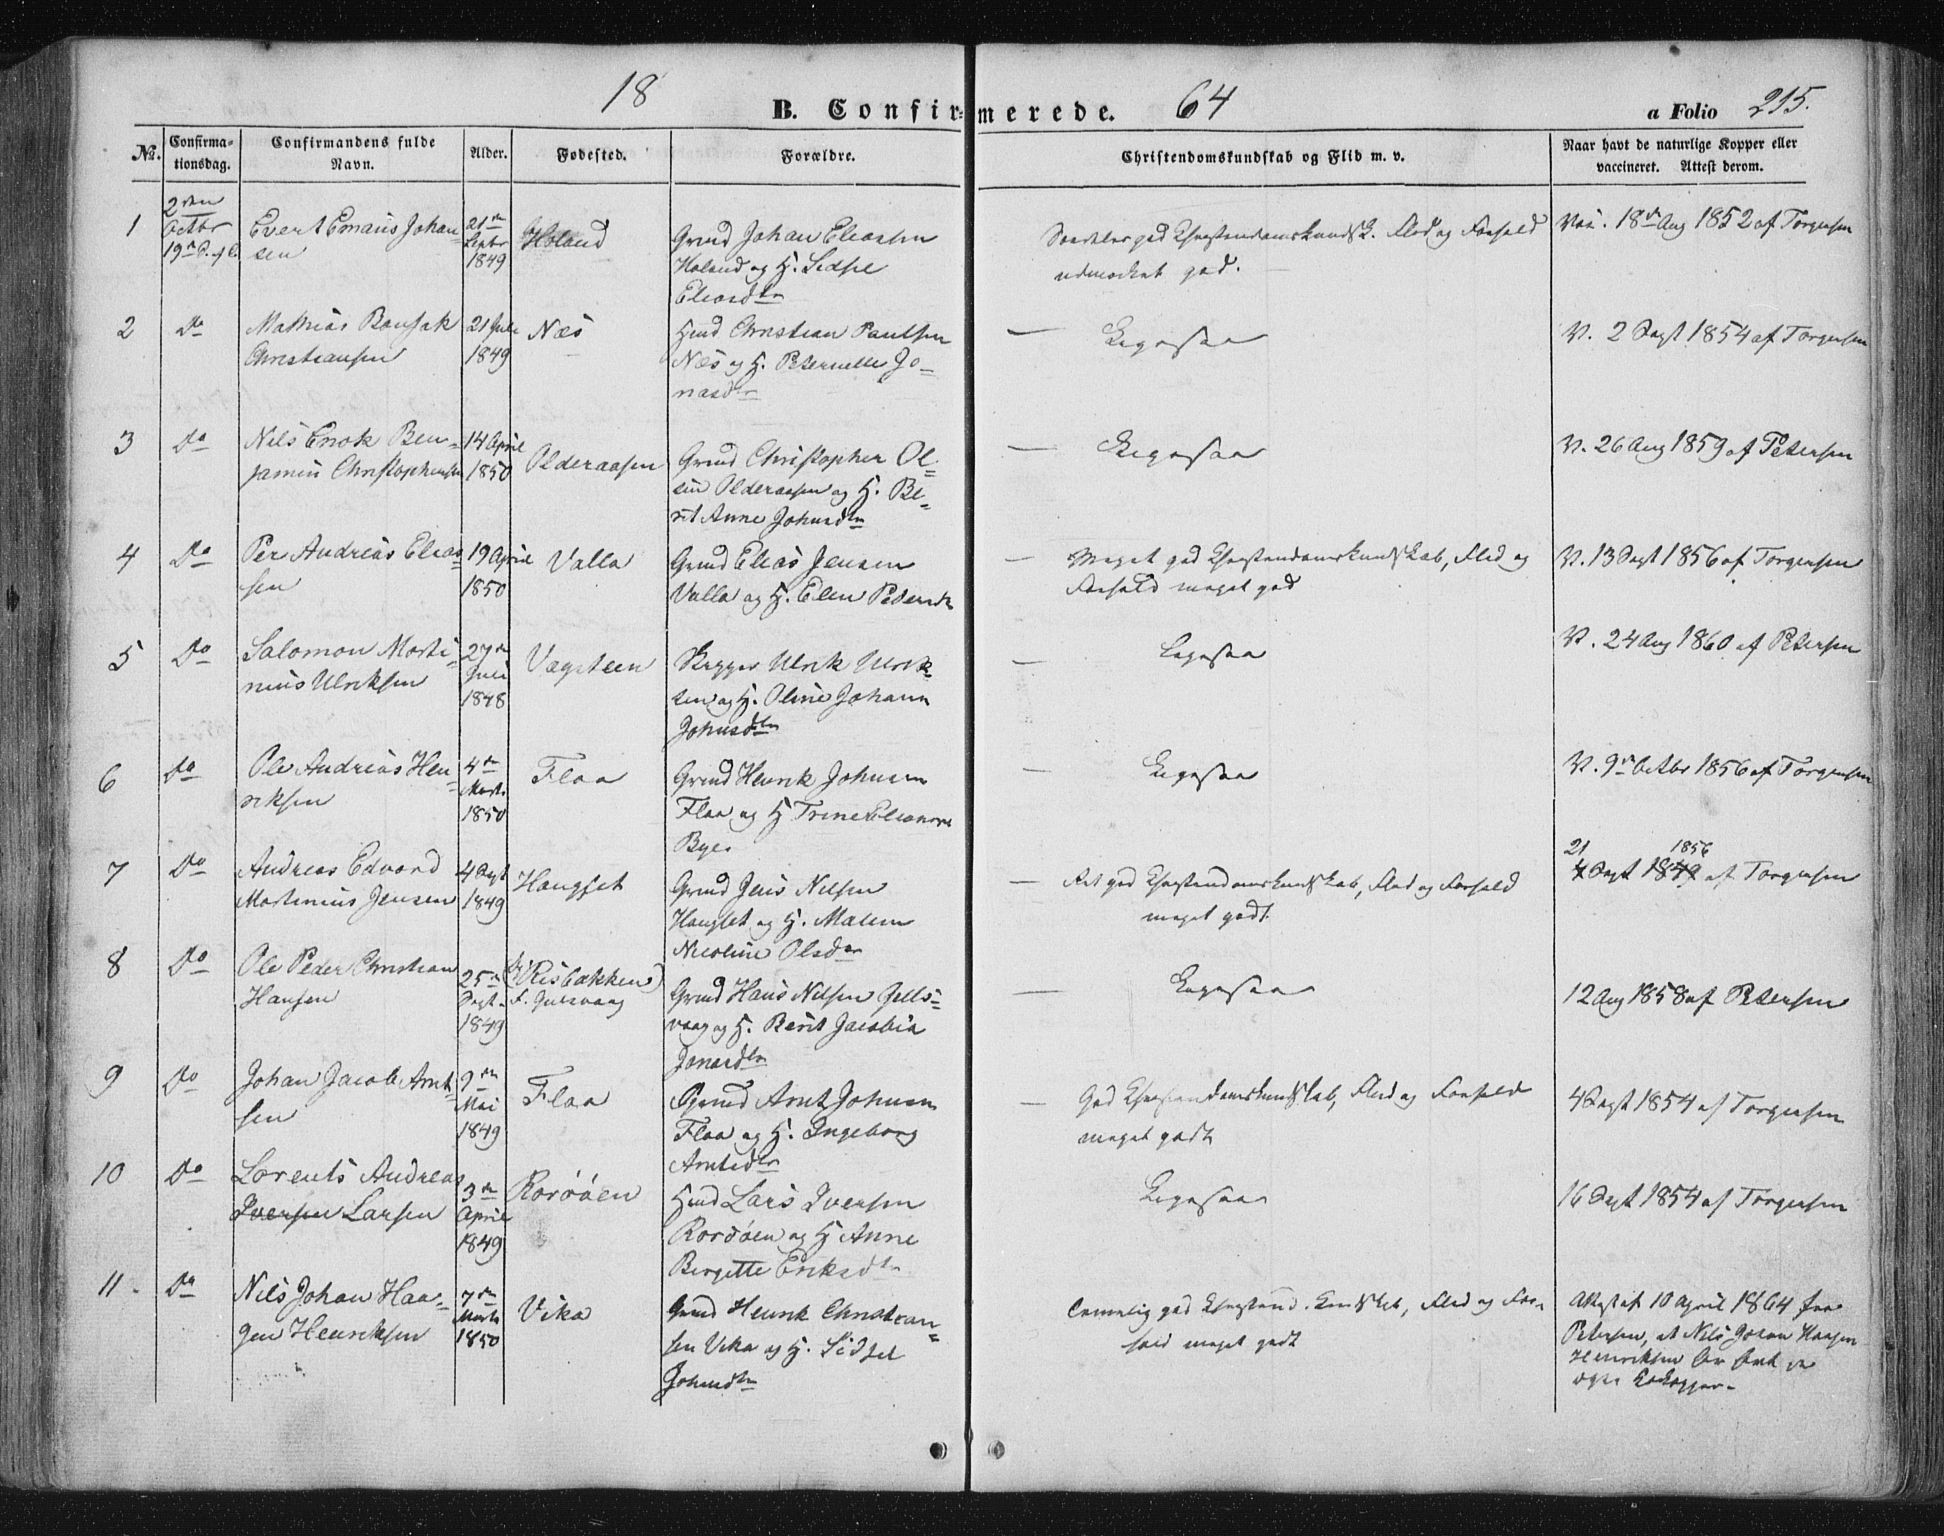 18 B. Confirmerede. 64 a Folio 215.
No. Confirmationsdag. Confirmandens fulde Navn. Alder. Fødested. Forældre. Christendomskundskab og Flid m. v. Naar havt de naturlige Kopper eller vaccineret. Attest derom.
1 2den Octbr 19n S. ef
Evert Emaus Johan-
sen
21de Septbr 1849
Holand
Grmd Johan Eliassen
Holand og H. Sidsel
Eliasdtr
Særdeles god Christendomskundsk. Flid og Forhold
udmærket god.
Vac. 18de Aug 1852 af Torgersen
2 Do
Mathias Bonsak
Christiansen
21 Juli
1849
Næs
Hmd Christian Paulsen
Næs og H. Peternelle Jo-
nasdtr
— Ligesaa
V. 2 Sept 1854 af Torgersen
3 Do
Nils Enok Ben-
jamin Christophersen
14 April
1850
Olderaasen
Grmd Christopher Ol-
sen Olderaasen og H. Be-
rit Anne Johnsdtr
— Ligesaa
V. 26 Aug 1859 af Petersen
4 Do
Per Andreas Elias-
sen
19 April
1850
Valla
Grmd Elias Jensen
Valla og H. Elen Pedersdtr
— Meget god Christendomskundskab, Flid og
Forhold meget god
V. 13 Sept 1856 af Torgersen
5 Do
Salomon Morti-
nius Ulriksen
27de
Juli
1848
Vagsteen
Skipper Ulrik Ulrik-
sen og H. Oline Johann
Johnsdtr
— Ligesaa
V. 24 Aug 1860 af Petersen
6 Do
Ole Andreas Hen-
riksen
4de
Marts
1850
Flaa
Grmd Henrik Johnsen
Flaa og H Trine Elianora
Byes
— Ligesaa
V. 9de Octbr 1856 af Torgersen
7 Do
Andreas Edvard
Martinius Jensen
4 Sept
1849
Haugset
Grmd Jens Nilsen
Haugset og H. Malen
Nicoline Olsdtr
— Ret god Christendomskundskab, Flid og Forhold
meget godt.
21 1856
4 Sept 1849 af Torgersen
8 Do
Ole Peder Christian
Hansen
25de
Sept.
1849
(Risbakken)
Grmd Hans Nilsen Gulls-
vaag og H. Berit Jacobia
Jonasdtr
— Ligesaa
12 Aug 1858 af Petersen
9 Do
Johan Jacob Arnt-
sen
9de
Mai
1849
Flaa
Grmd Arnt Johnsen
Flaa og H. Ingeborg
Arntsdtr
— God Christendomskundskab, Flid og Forhold
meget godt
4 Sept 1854 af Torgersen
10 Do
Lorents Andreas
Iversen Larsen
3de
April
1849
Rorøöen
Hmd Lars Iversen
Rorøöen og H Anne
Birgitte Eriksdtr
Ligesaa
16 Sept 1854 af Torgersen
11 Do
Nils Johan Haa-
gen Henriksen
7de
Marts
1850
Vika
Grmd Henrik Christian-
sen Vika og H. Sidsel
Johnsdtr
Temmelig god Christend. kundskab, Flid og For-
hold meget godt
Attest af 10 April 1864 fra
Petersen, at Nils Johan Haagen
Henriksen